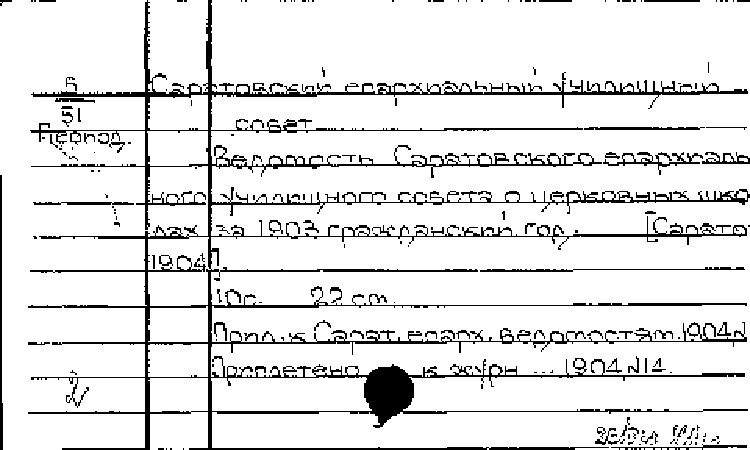 Б
51
Период.
Саратовский епархиальный Училищный
совет.
Ведомость Саратовского епархиаль
ного Училищного совета о церковных шко
лах за 1903 гражданский год. [Сарато
1904].
10с. 22 cm.
Прил. к Сарат. епарх. ведомостям. 1904 №
Приплетено к журн ... 1904 №14.
2